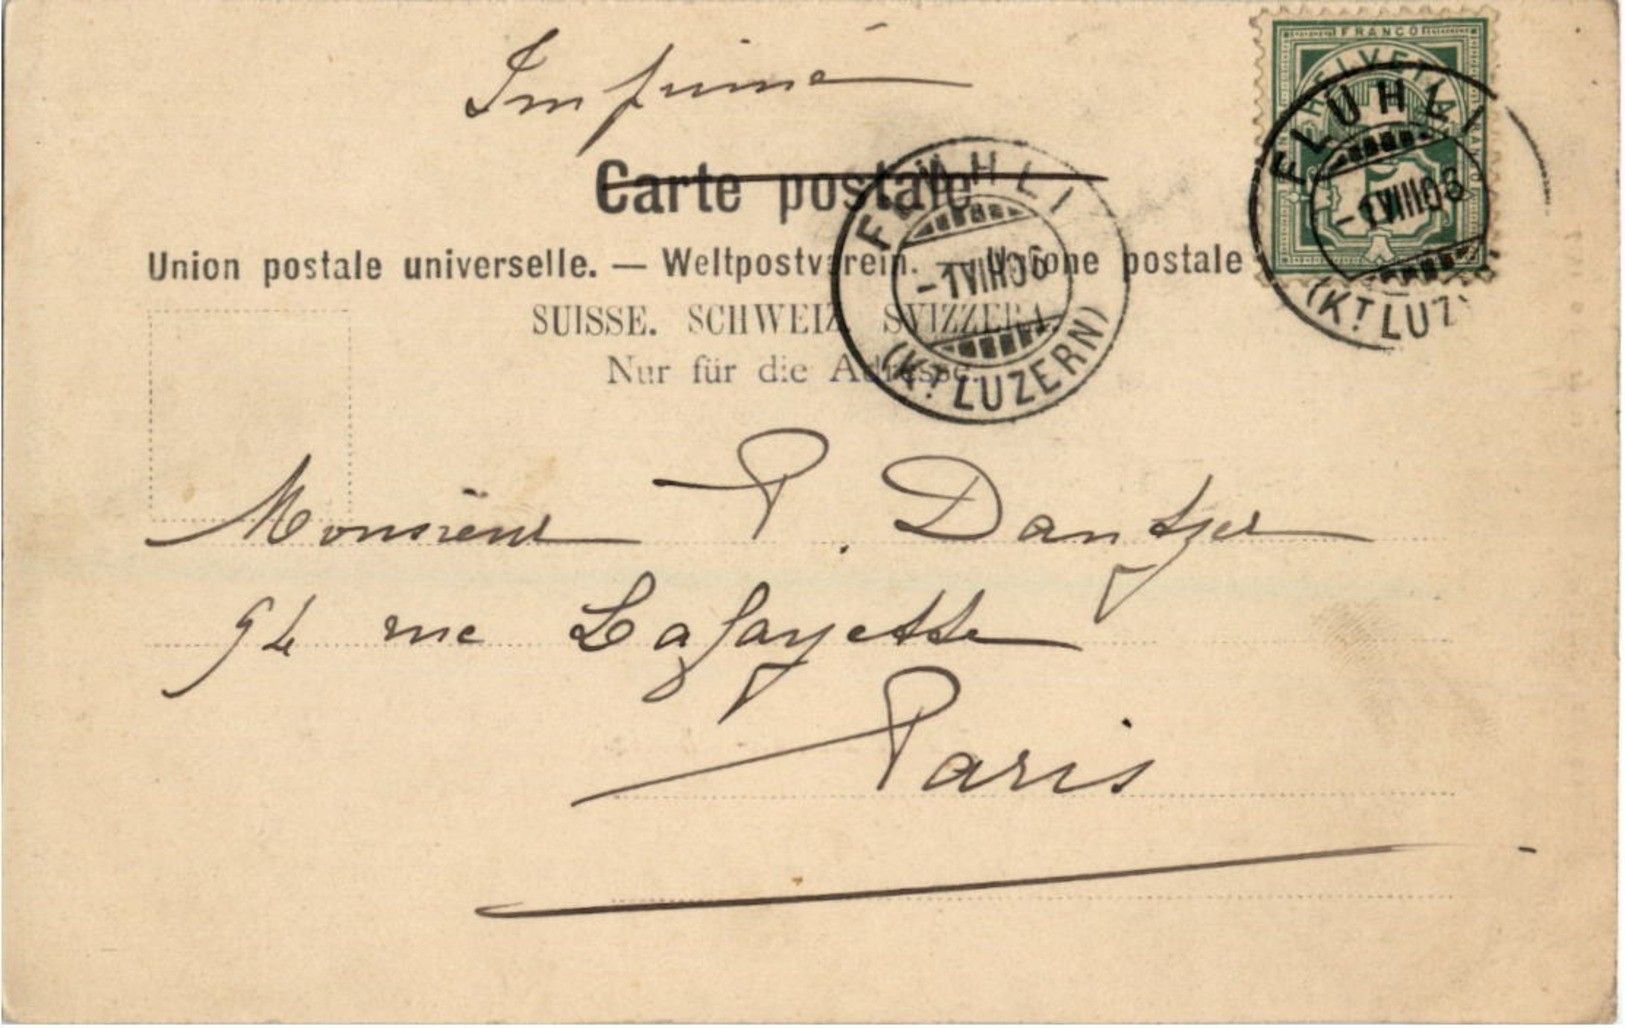 Imprimé
FRANCO
HELVETIA
5
Carte postale
FLÜHLI
-1.VIII.06
(KT. LUZERN)
FLÜHLI
-1.VIII.06
(KT. LUZ
Union postale universelle. — Weltpostverein. — Unione postale
SUISSE. SCHWEIZ. SVIZZERA.
Nur für die Adresse.
Monsieur P. Dantzer
94 rue Lafayette
Paris